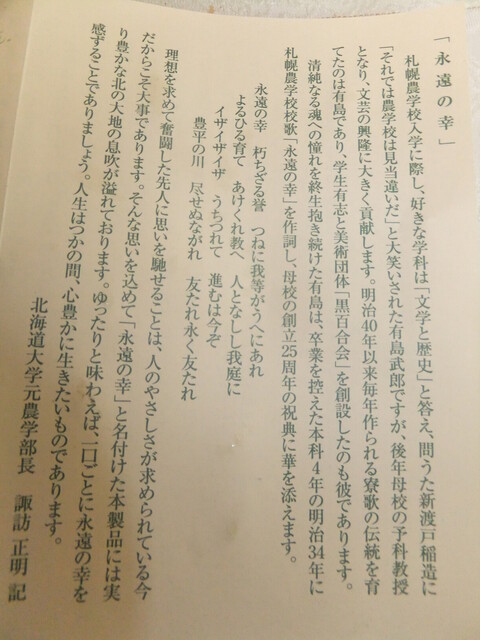 「永遠の幸」
札幌農学校入学に際し、好きな学科は「文学と歴史」と答え、間うた新渡戸稲造に
「それでは農学校は見当違いだ」と大笑いされた有島武郎ですが、後年母校の予科教授
となり、文芸の興隆に大きく貢献します。明治40年以来毎年作られる寮歌の伝統を育
てたのは有島であり、学生有志と美術団体「黒百合会」を創設したのも彼であります。
清純なる魂への憧れを終生抱き続けた有島は、卒業を控えた本科4年の明治34年に
札幌農学校校歌「永遠の幸」を作詞し、母校の創立25周年の祝典に華を添えます。
永遠の幸 朽ちざる誉 つねに我等がうへにあれ
よるひる育て あけくれ教へ 人となしし我庭に
イザイザイザ うちつれて 進むは今ぞ
豊平の川 尽せぬながれ 友たれ永く友たれ
理想を求めて奮闘した先人に思いを馳せることは、人のやさしさが求められている今
だからこそ大事であります。そんな思いを込めて「永遠の幸」と名付けた本製品には実
り豊かな北の大地の息吹が溢れております。ゆったりと味わえば、一口ごとに永遠の幸を
感ずることでありましょう。人生はつかの間、心豊かに生きたいものであります。
北海道大学元農学部長 諏訪 正明 記